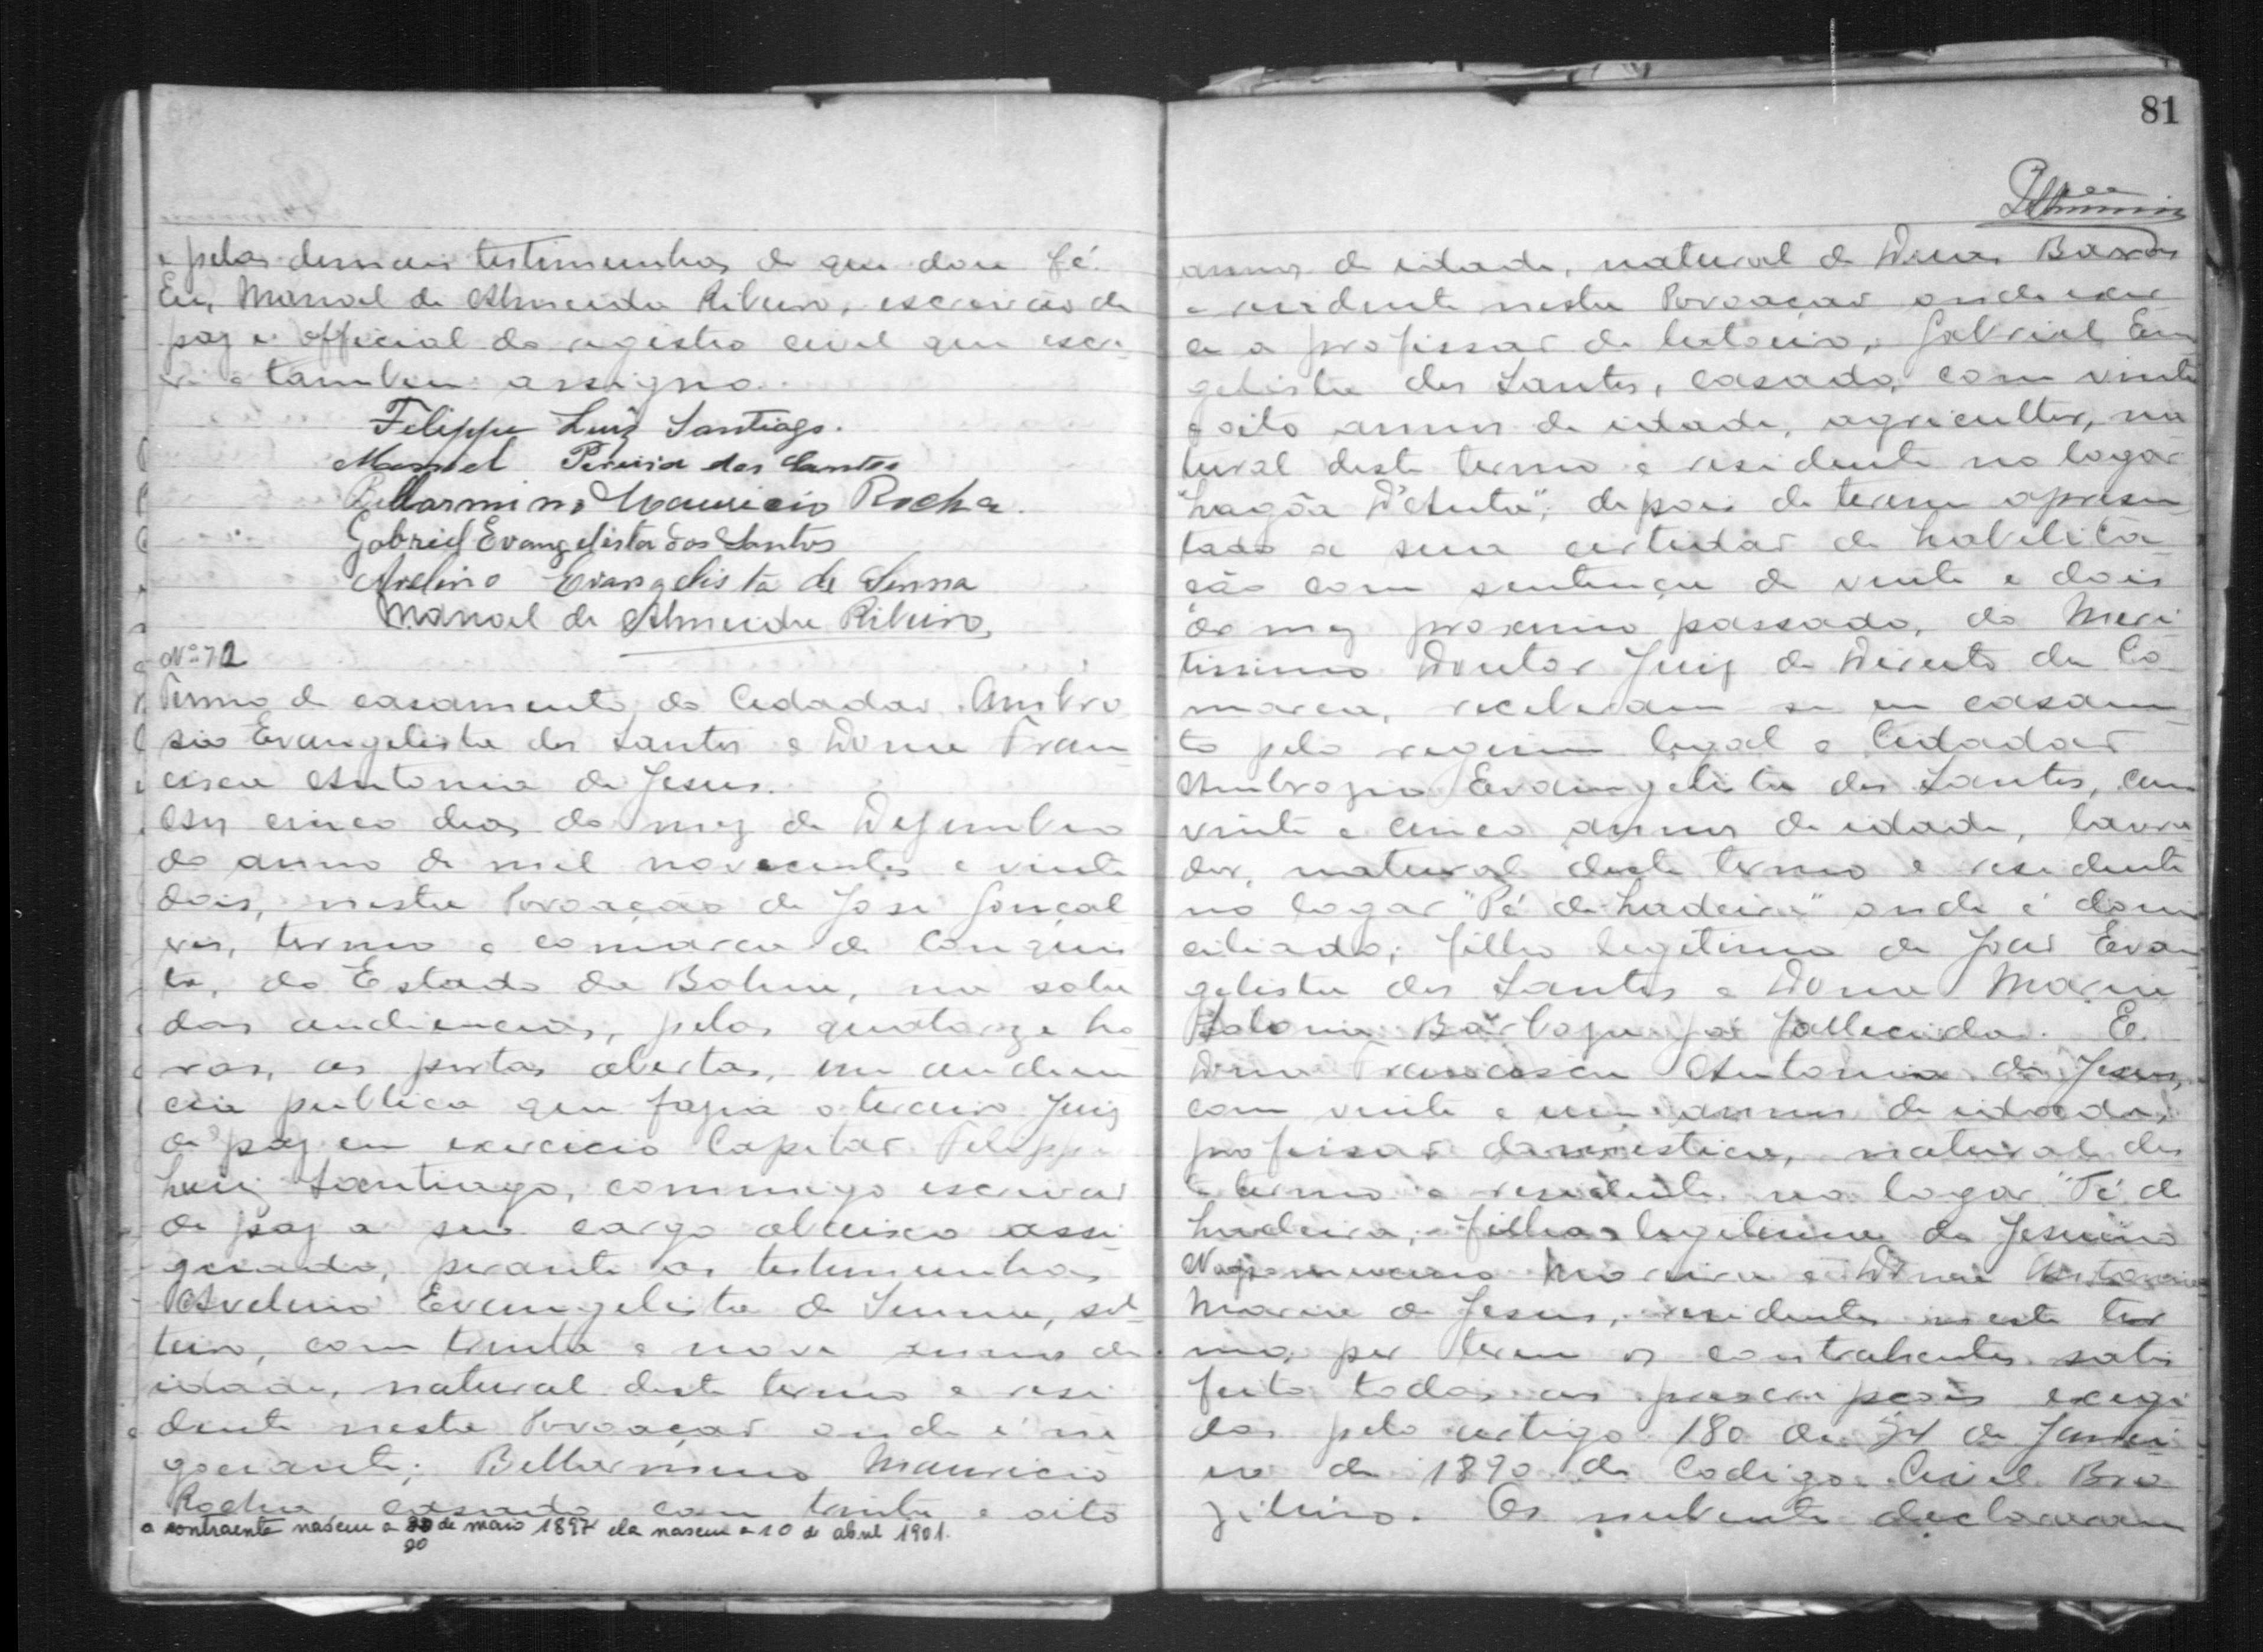 e pelas demais testimunhas de que dou fé.
Eu, Manoel de Almeida Ribeiro, escrivão de
paz e official do registro civil que escre
vi e tambem assigno.
Filippe Luiz Santiago.
Manoel Pereira dos Santos
Bellarmino Mauricio Rocha.
Gabriel Evangelista dos Santos
Avelino Evangelista de Senna
Manoel de Almeida Ribeiro,
Nº 72
Termo de casamento do Cidadão Ambro
sio Evangelista dos Santos e Dona Fran
cisca Antonia de Jesus.
Aos cinco dias do mez de Dezembro
do anno de mil novecentos e vinte
dois, nesta Povoação de José Gonçal
ves, termo e comarca de Conquis
ta, do Estado da Bahia, na sala
das audiencias, pelas quatorze ho
ras, as portas abertas, em audien
cia publica que fazia o terceiro Juiz
de paz em exercicio Capitão Filippe
Luiz Santiago, commigo escrivão
de paz a seu cargo abaixo assi
gnado, perante as testimunhas
Avelino Evangelista de Senna, sol
teiro, com trinta e nove annos de
idade, natural deste termo e resi
dente nesta Povoação onde é ne
gociante; Bellarmino Mauricio
Rocha casado com trinta e oito
o contraente nasceu a 20 de maio 1897 ela nasceu a 10 de abril 1901.
20
81
annos de idade, natural de Duas Barras
e residente nesta Povoação onde exer
ce a profissão de, Gabriel Evan
gelista dos Santos, casado, com vinte
e oito annos de idade, agricultor, na
tural deste termo e residente no logar
"Lagôa D'Anta"; depois de terem apresen
tado a sua certidão de habilita
ção com sentença de vinte e dois
do mez proximo passado, do Meri
tissimo Doutor Juiz de Direito da Co
marca, receberam se em casamen
to pelo regimen legal o Cidadão
Ambrozio Evangelista dos Santos, com
vinte e cinco annos de idade, lavra
dor, natural deste termo e residente
no logar "Pé de Ladeira" onde é domi
ciliado; filho legitimo de João Evan
gelista dos Santos e Dona Maria
Barboza já fallecida. E
Dona Francisca Antonia de Jesus,
com vinte e um annos de idade,
profissão domestica, natural des
te termo e residente no logar "Pé de
Ladeira, filha legitima de Jesuino
Nepomuceno Moreira e Dona Antonia
Maria de Jesus, residentes neste ter
mo, por terem os contrahentes satis
feito todas as prescripções exegi
das pelo artigo 180 de 24 de Janei
ro de 1890 do Codigo Civil Bra
zileiro. Os nubentes declararam